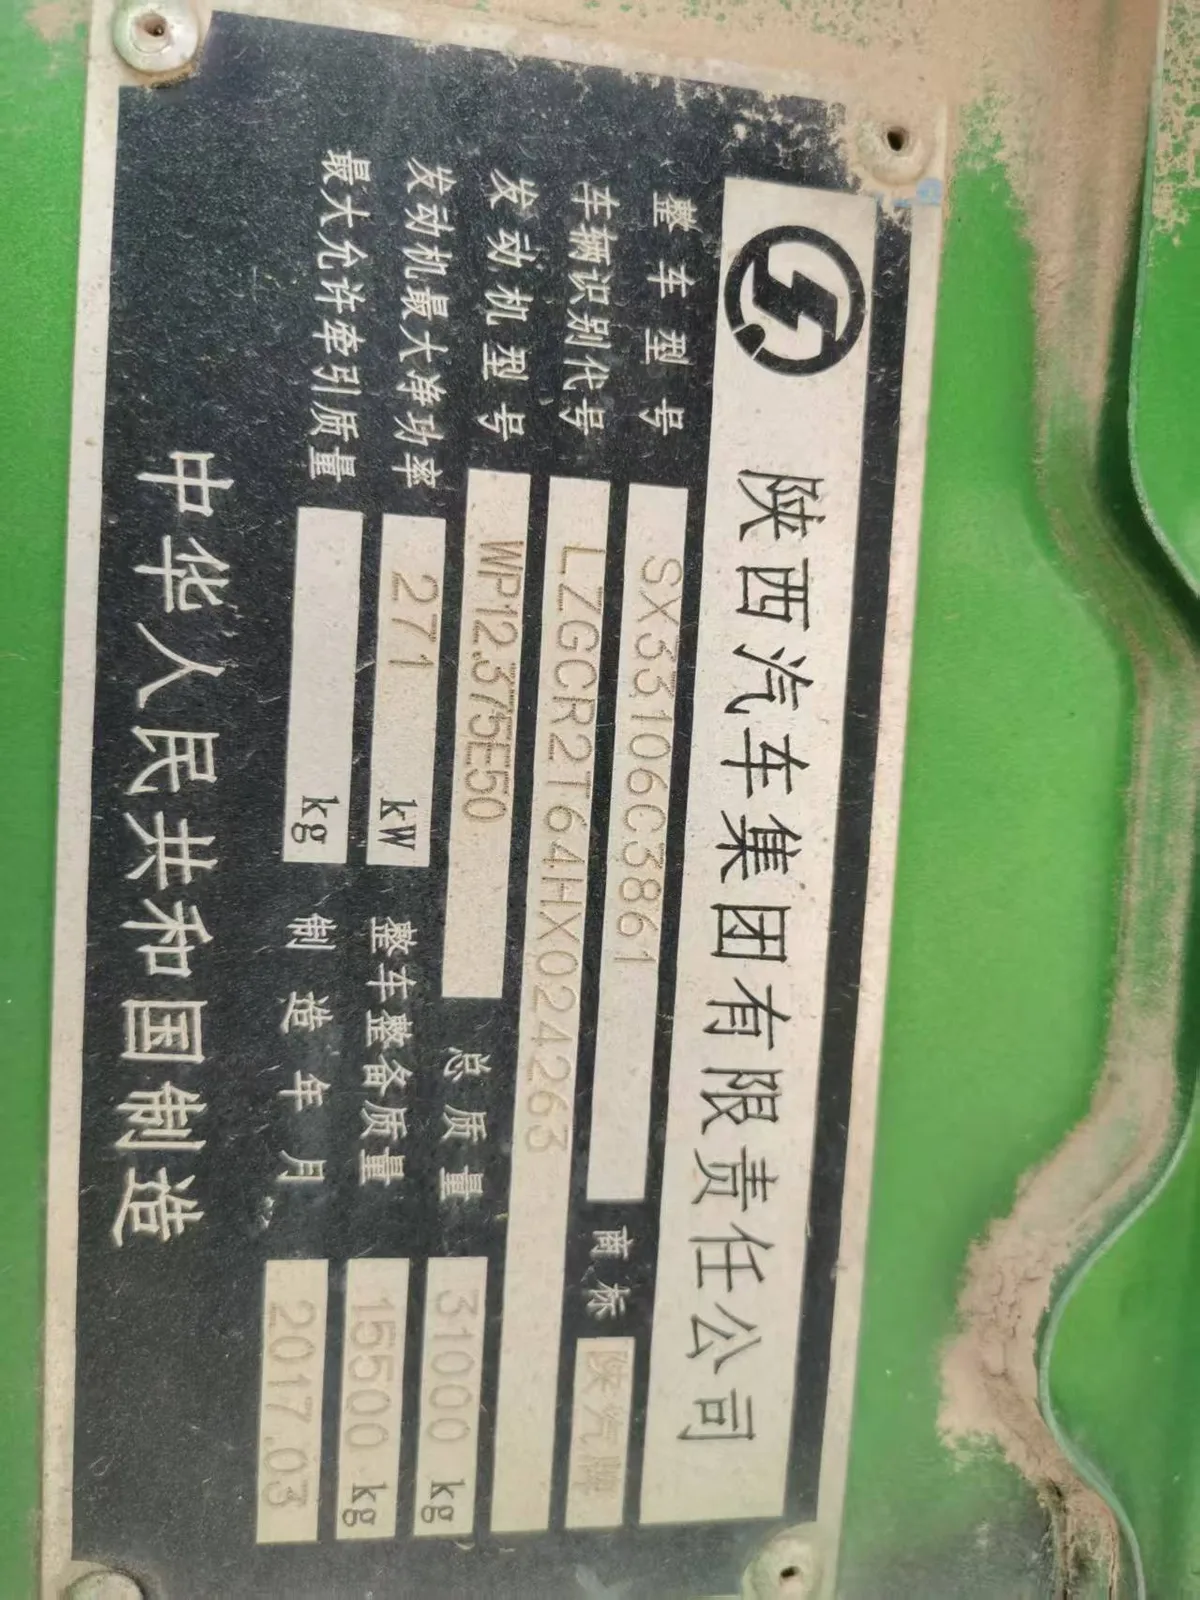 陕西汽车集团有限责任公司
整车型号 SX33106C3861 商标 陕汽牌
车辆识别代号 LZGCR2T64HX024263
发动机型号 WP12.375E50 总质量 31000 kg
发动机最大净功率 271 kW 整车整备质量 15500 kg
最大允许牵引质量 kg 制造年月 2017.03
中华人民共和国制造